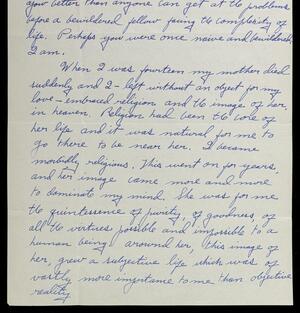 you better than anyone can get at the problems
before a bewildered fellow facing the complexity of
life. Perhaps you were once naive and bewildered,
I am.
When I was fourteen my mother died
suddenly and I - left without an object for my
love - embraced religion and the image of her,
in heaven. Religion had been the core of
her life and it was natural for me to
go there to be near her. I became
morbidly religious. This went on for years,
and her image came more and more
to dominate my mind. She was for me
the quintessence of purity, of goodness, of
all the virtues possible and impossible to a
human being around her, this image of
her, grew a subjective life which was of
vastly more importance to me than objective
reality